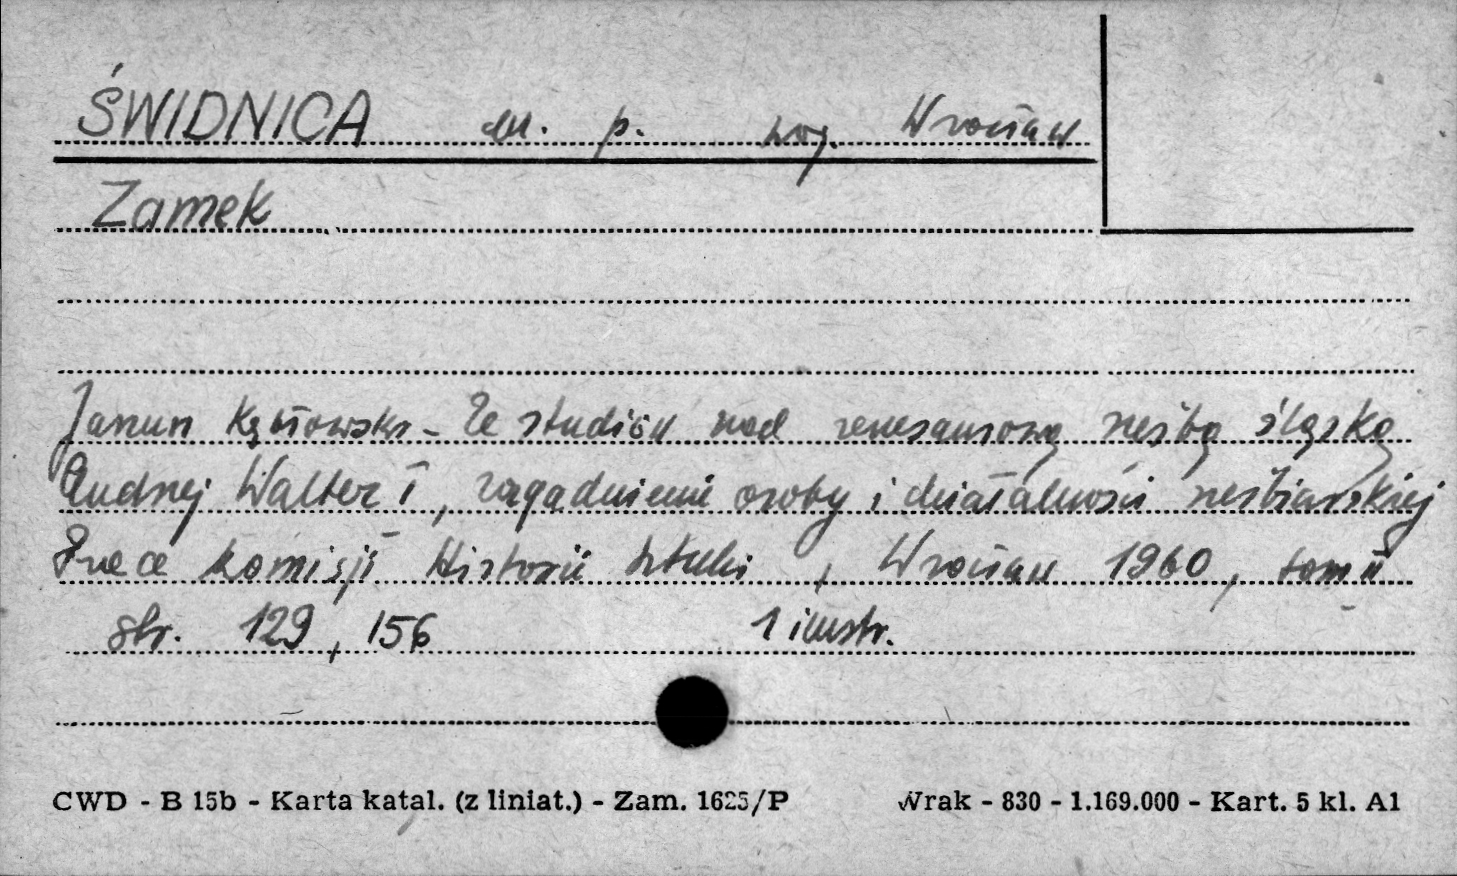 ŚWIDNICA m. p. woj. Wrocław
Zamek
Janusz Kębłowski – Ze studiów nad renesansową rzeźbą śląską
Andrzej Walter I, zagadnienie osoby i działalności rzeźbiarskiej
Prace Komisji Historii Sztuki, Wrocław 1960, tom II
str. 129, 156 1 ilustr.
CWD - B 15b - Karta katal. (z liniat.) - Zam. 1625/P Wrak - 830 - 1.169.000 - Kart. 5 kl. A1